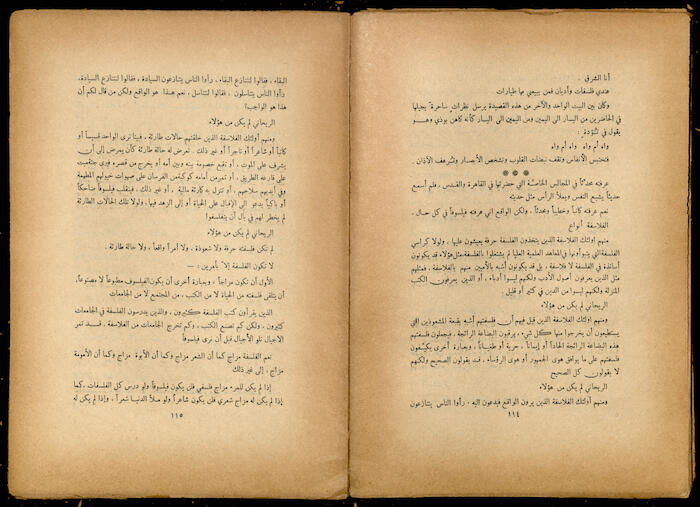 أنا الشرق .
عندي فلسفات وأديان فمن يبيعني بها طيارات
وكان بين البيت الواحد والآخر من هذه القصيدة يرسل نظرات ساحرة يجيلها
في الحاضرين من اليسار الى اليمين ومن اليمين الى اليسار كأنه كاهن بوذي وهو
يقول في تُؤَدة :
واه أم واه واه أم واه
فتحتبس الأنفاس وتقف نبضات القلوب وتشخص الأبصار وتُرهف الآذان .
***
عرفته محدثاً في المجالس الخاصة التي حضرتها في القاهرة والقدس ، فلم أسمع
حديثاً يشبع النفس ويملأ الرأس مثل حديثه
نعم عرفته كاتباً وخطيباً ومحدثاً ، ولكن الواقع اني عرفته فيلسوفاً في كل حال .
الفلاسفة أنواع
منهم اولئك الفلاسفة الذين يتخذون الفلسفة حرفة يعيشون عليها ، ولولا كراسي
الفلسفة التي يتبوأونها في المعاهد العلمية العليا لم يشتغلوا بالفلسفة مثل هؤلاء قد يكونون
أساتذة في الفلسفة لا فلاسفة ، بل قد يكونون أشبه بالأميين منهم بالفلاسفة ، فمثلهم
مثل الذين يعرفون أصول الأدب ولكنهم ليسوا أدباء ، أو الذين يعرفون الكتب
المنزلة ولكنهم ليسوا من الدين في كثير أو قليل :
الريحاني لم يكن من هؤلاء
ومنهم اولئك الفلاسفة الذين قيل فيهم أن فلسفتهم أشبه بقبعة المشعوذين التي
يستطيعون أن يخرجوا منها كل شيء ، يرقبون البضاعة الرائجة ، فيجعلون فلسفتهم
هذه البضاعة الرائجة إلحاداً أو إيماناً ، حرية أو طغياناً ، وبعبارة أخرى يكيّفون
فلسفتهم على ما يوافق هوى الجمهور أو هوى الرؤساء ، قد يقولون الصحيح ولكنهم
لا يقولون كل الصحيح
الريحاني لم يكن من هؤلاء
ومنهم أولئك الفلاسفة الذين يرون الواقع فيدعون اليه . رأوا الناس يتنازعون
١١٤
البقاء ، فقالوا لنتنازع البقاء ، رأوا الناس يتنازعون السيادة ، فقالوا لنتنازع السيادة،
رأوا الناس يتناسلون ، فقالوا لنتناسل ، نعم هذا هو الواقع ولكن من قال لكم أن
هذا هو الواجب؟
الريحاني لم يكن من هؤلاء
ومنهم أولئك الفلاسفة الذين خلقتهم حالات طارئة ، فبينا ترى الواحد قسيساً أو
كاتباً أو شاعراً أو تاجراً أو غير ذلك . تعرض له حالة طارئة كأن يمرض إلى أن
يشرف على الموت ، أو تقع خصومة بينه وبين أمه أو يخرج من قصره فيرى جثة ميت
على قارعة الطريق ، أو تمر من أمامه كوكبة من الفرسان على صهوات خيولهم المطهمة
وفي أيديهم سلاحهم ، أو تنزل به كارثة مالية ، أو غير ذلك . فينقلب فيلسوفاً ضاحكاً
أو باكياً يدعو الى الإقبال على الحياة أو إلى الزهد فيها ، ولولا تلك الحالات الطارئة
لم يخطر لهم في بال أن يتفلسفوا
الريحاني لم يكن من هؤلاء
لم تكن فلسفته حرفة ولا شعوذة ، ولا أمراً واقعاً ، ولا حالة طارئة .
لا تكون الفلسفة إلا بأمرين : —
الأول أن تكون مزاجاً ، وبعبارة أخرى أن يكون الفيلسوف مطبوعاً لا مصنوعاً،
أن يتلقى فلسفته من الحياة لا من الكتب ، من المجتمع لا من الجامعات
الذين يقرأون كتب الفلسفة كثيرون ، والذين يدرسون الفلسفة في الجامعات
كثيرون ، ولكن كم تصنع الكتب ، وكم تخرج الجامعات من الفلاسفة ، قد تمر
الاجيال تلو الأجيال قبل أن نرى فيلسوفاً
نعم الفلسفة مزاج كما أن الشعر مزاج وكما أن الأبوة مزاج وكما أن الأمومة
مزاج ، إلى غير ذلك
إذا لم يكن للمرء مزاج فلسفي فلن يكون فيلسوفاً ولو درس كل الفلسفات ، كما
إذا لم يكن له مزاج شعري فلن يكون شاعراً ولو ملأ الدنيا شعراً ، وإذا لم يكن له
١١٥